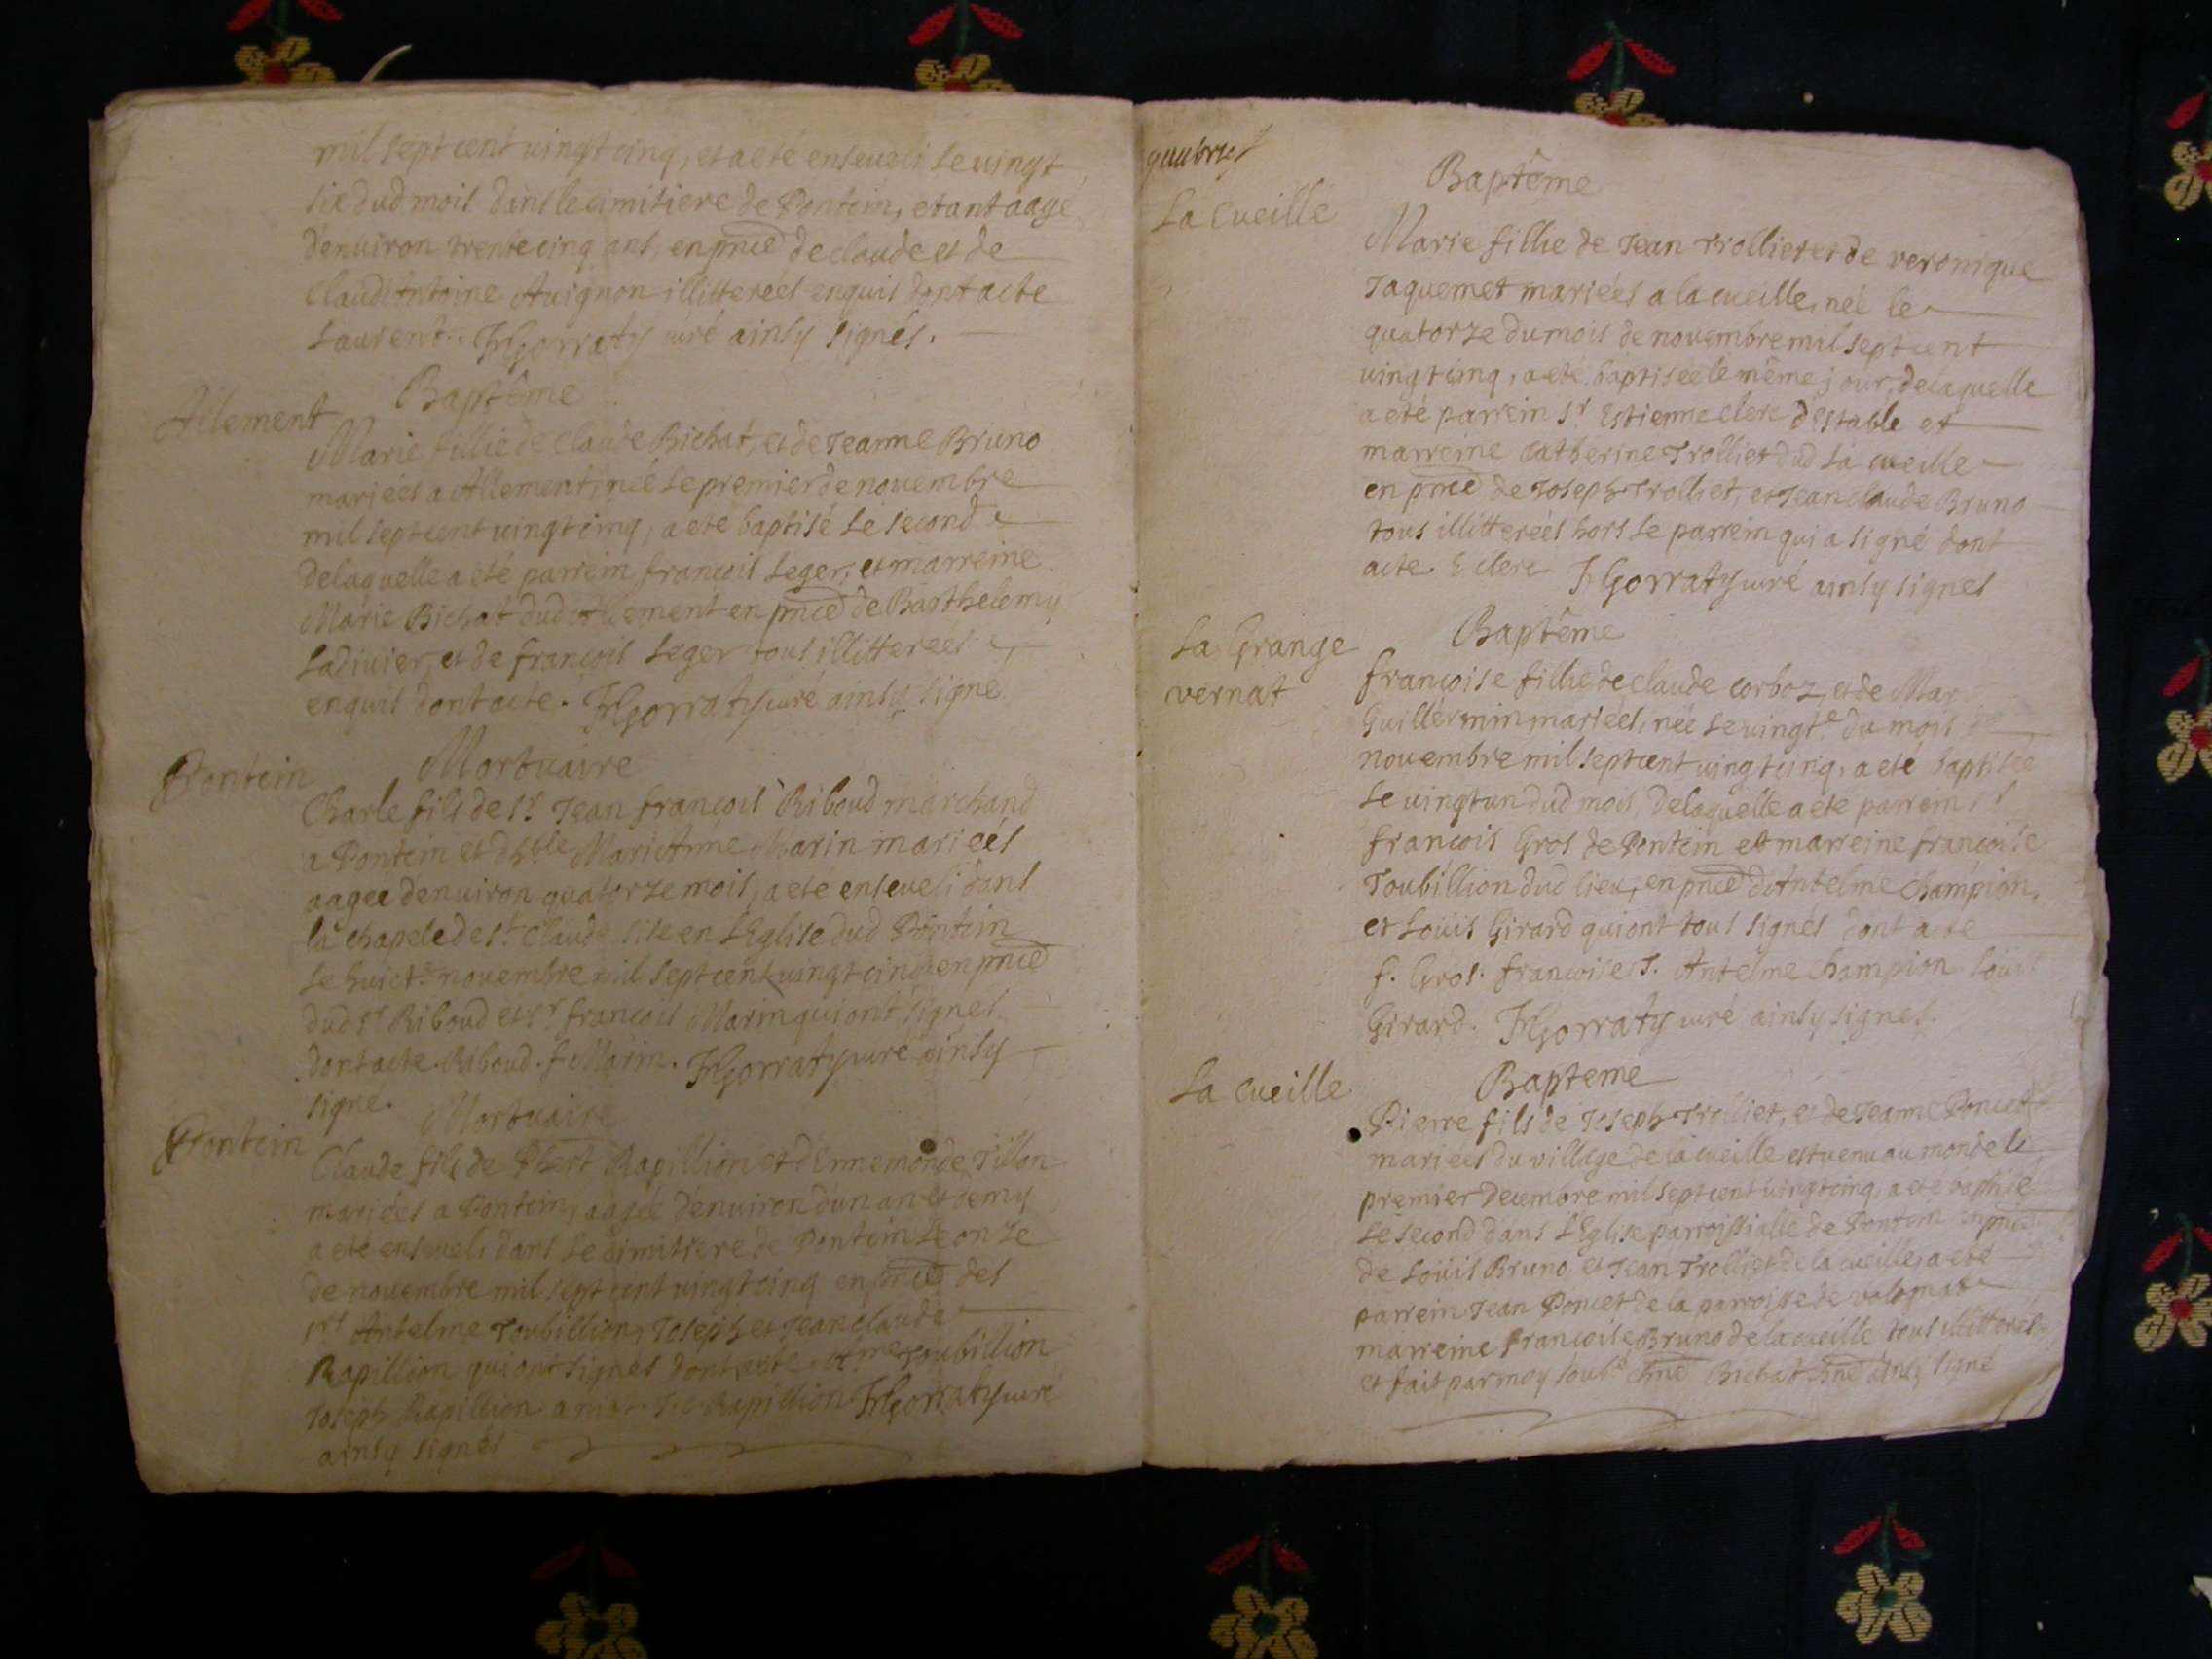 mil sept cent vingt cinq, et a eté enseveli le vingt
six dud mois dans le cimitiere de Pontein, etant aagé
d'environ trente cinq ans, en pnce de claude et de
claud Antoine Avignon illitterées enquis dont acte
Laurent. Gorraty curé ainsy signés.
Baptême
Allement
Marie fillie de claude Bichat, et de Jeanne Bruno
mariées a Allement, née le premier de novembre
mil sept cent vingt cinq, a eté baptisé le second
de laquelle a eté parrein francois Leger, et marreine
Marie Bichat dud Allement en pnce de Barthelemy
Ladivier, et de francois Leger tous illitterees
enquis dont acte. Gorraty curé ainsy signé
Mortuaire
Pontein
Charle fils de Sr. Jean francois Riboud marchand
a Pontein et d'hble Marie Anne Marin mariées
aagee d'environ quatorze mois, a eté enseveli dans
la chapele de St Claude sise en L'Eglise dud Pontein
le huict novembre mil sept cent vingt cinq en pnce
dud Sr Riboud et Sr francois Marin qui ont signes
dont acte. Riboud. f Marin. Gorraty curé ainsy
signe.
Mortuaire
Pontein
Claude fils de Phert Rapillion et d'Ennemonde Tillon
mariées a Pontein, aagée d'environ d'un an et demy
a eté enseveli dans le cimitiere de Pontein le onze
de novembre mil sept cent vingt cinq en pnce des
Srs Antelme Toubillion, Joseph et Jean claude
Rapillion qui ont signés dont acte. Toubillion
Joseph Rapillion Rapillion Gorraty curé
ainsy signés
La Cueille
Baptême
Marie fillie de Jean Trolliet et de veronique
Jaquemet mariées a la cueille, née le
quatorze du mois de novembre mil sept cent
vingt cinq, a eté baptisée le même jour, de laquelle
a eté parrein Sr Estienne clerc d'Estable et
marreine Catherine Trolliet dud La cueille
en pnce de Joseph Trolliet, et Jean claude Bruno
tous illitterées hors le parrein qui a signé dont
acte. E clerc Gorraty curé ainsy signes
La Grange
vernat
Baptême
francoise fillie de claude corboz, et de Mar
Guillermin mariées, née le vingte du mois
novembre mil sept cent vingt cinq, a eté baptisée
le vingt un dud mois, de laquelle a eté parrein Sr
francois Gros de Pontein et marreine francoise
Toubillion dud lieu, en pnce d'Antelme Champion,
et Loüis Girard qui ont tous signés dont acte
f. Gros. francoise T. Antelme Champion Louis
Girard. Gorraty curé ainsy signes.
La cueille
Bapteme
Pierre fils de Joseph Trolliet, et de Jeanne Poncet
mariees du village de la cueille est venu au monde le
premier decembre mil sept cent vingt cinq, a eté baptisé
le second dans L'Eglise parroissialle de Pontein en pnce
de Loüis Bruno, et Jean Trolliet de la cueille, a eté
parrein Jean Poncet de la parroisse de
marreine francoise Bruno de la cueille tous illitteres
et fait par moy Bichat ainsy signé